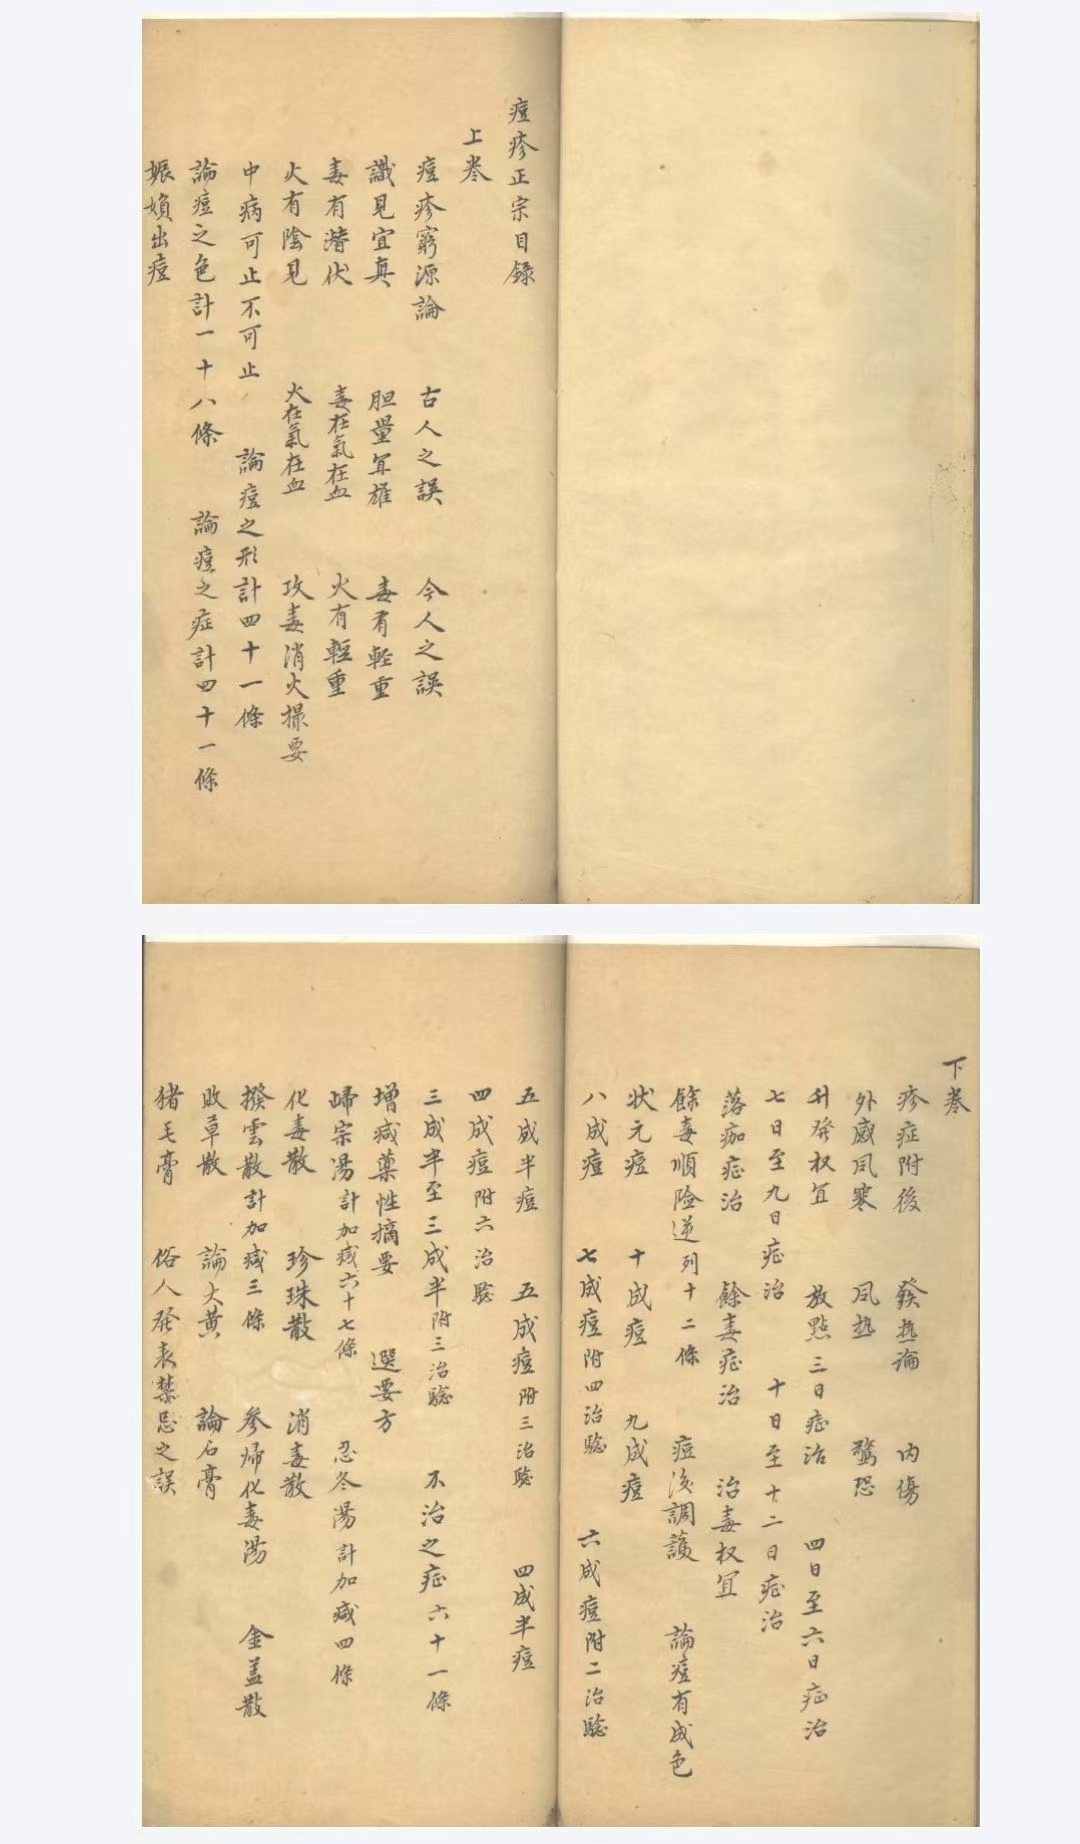 痘疹正宗目錄
上卷
痘疹窮源論 古人之誤 今人之誤
識見宜真 胆量宜雄 毒有輕重
毒有潛伏 毒在氣在血 火有輕重
火有陰見 火在氣在血 攻毒消火撮要
中病可止不可止 論痘之形計四十一條
論痘之色計一十八條 論痘之症計四十一條
娠婦出痘
下卷
疹症附後 發熱論 內傷
外感風寒 風熱 驚恐
升發权宜 放點三日症治 四日至六日症治
七日至九日症治 十日至十二日症治
落痂症治 餘毒症治 治毒权宜
餘毒順險逆列十二條 痘後調護 論痘有成色
状元痘 十成痘 九成痘
八成痘 七成痘附四治驗 六成痘附二治驗
五成半痘 五成痘附三治驗 四成半痘
四成痘附六治驗
三成半至三成半附三治驗 不治之症六十一條
增減藥性摘要 選要方
歸宗湯計加減六十七條 忍冬湯計加減四條
化毒散 珍珠散 消毒散
撥雲散計加減三條 参歸化毒湯 金盖散
敗草散 論大黄 論石膏
猪毛膏 俗人發表禁忌之誤